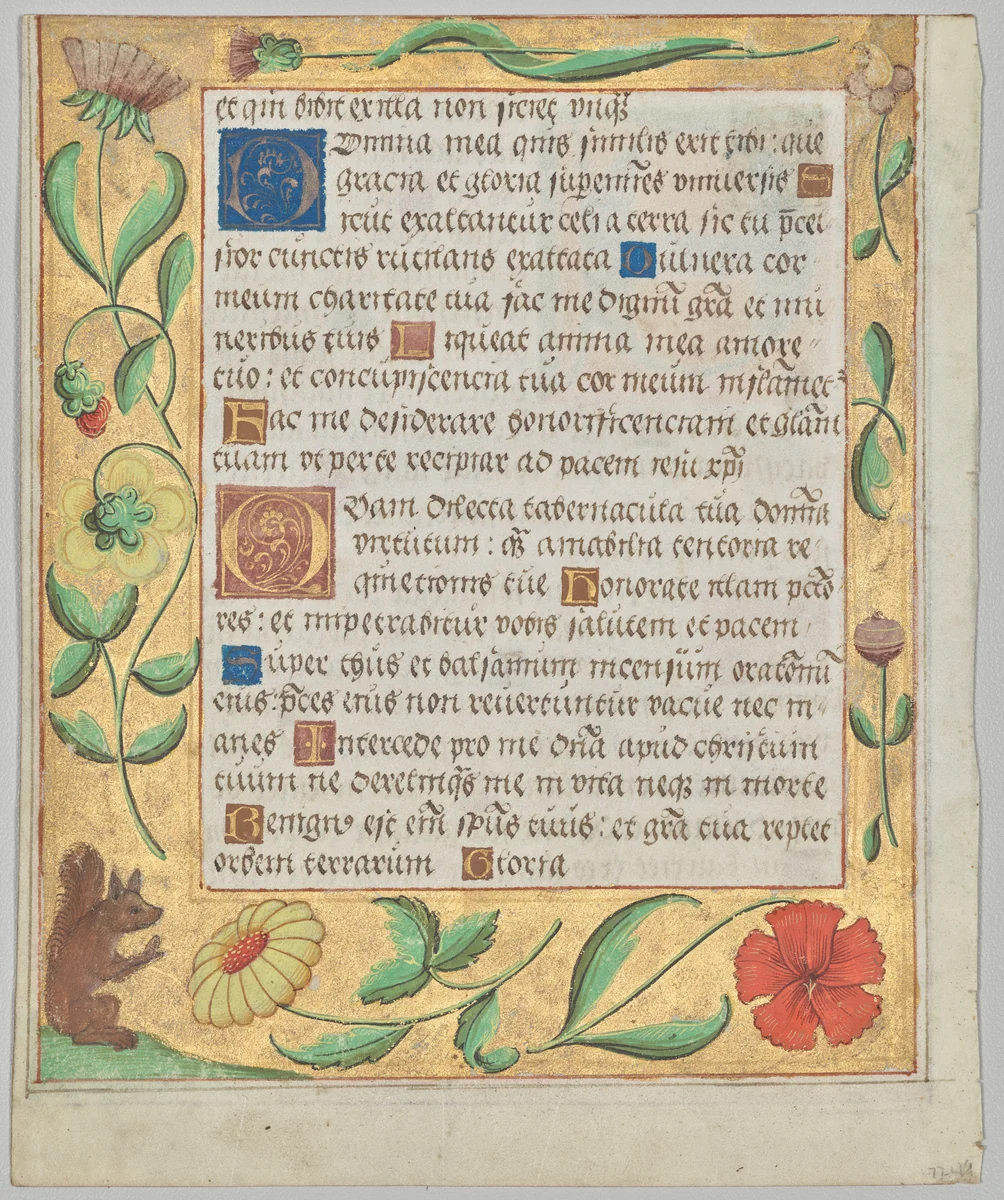 et qui bibit ex illa non sitiet vnq̄ȝ
Domina mea quis similis erit tibi: que
gracia et gloria superemīes vniuersis S
icut exaltantur celi a terra sic tu p̄cel
sior cunctis rutilans exaltata Uulnera cor
meum charitate tua fac me dignū grā et mu
neribus tuis Liqueat anima mea amore
tuo: et concupiscencia tua cor meum
Fac me desiderare honorificenciam et glām
tuam vt per te recipiar ad pacem iesu xp̄i
Quam dilecta tabernacula tua domīa
virtutum: q̄ȝ amabilia tentoria re
quietionis tue Honorate illam pctō
res: et impetrabitur vobis salutem et pacem
Super thus et balsamum incensum oratōnū
eius: p̄ces eius non reuertuntur vacue nec in
anes Intercede pro me dn̄a apud christum
tuum ne derelinq̄s me in vita neqȝ in morte
Benignꝰ est em̄ sp̄us tuus: et grā tua replet
orbem terrarum Gloria